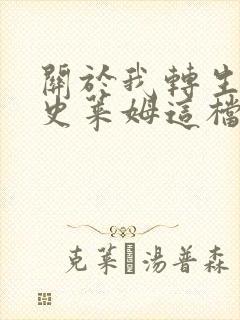 關於我轉生
史萊姆這檔
克萊 湯普森